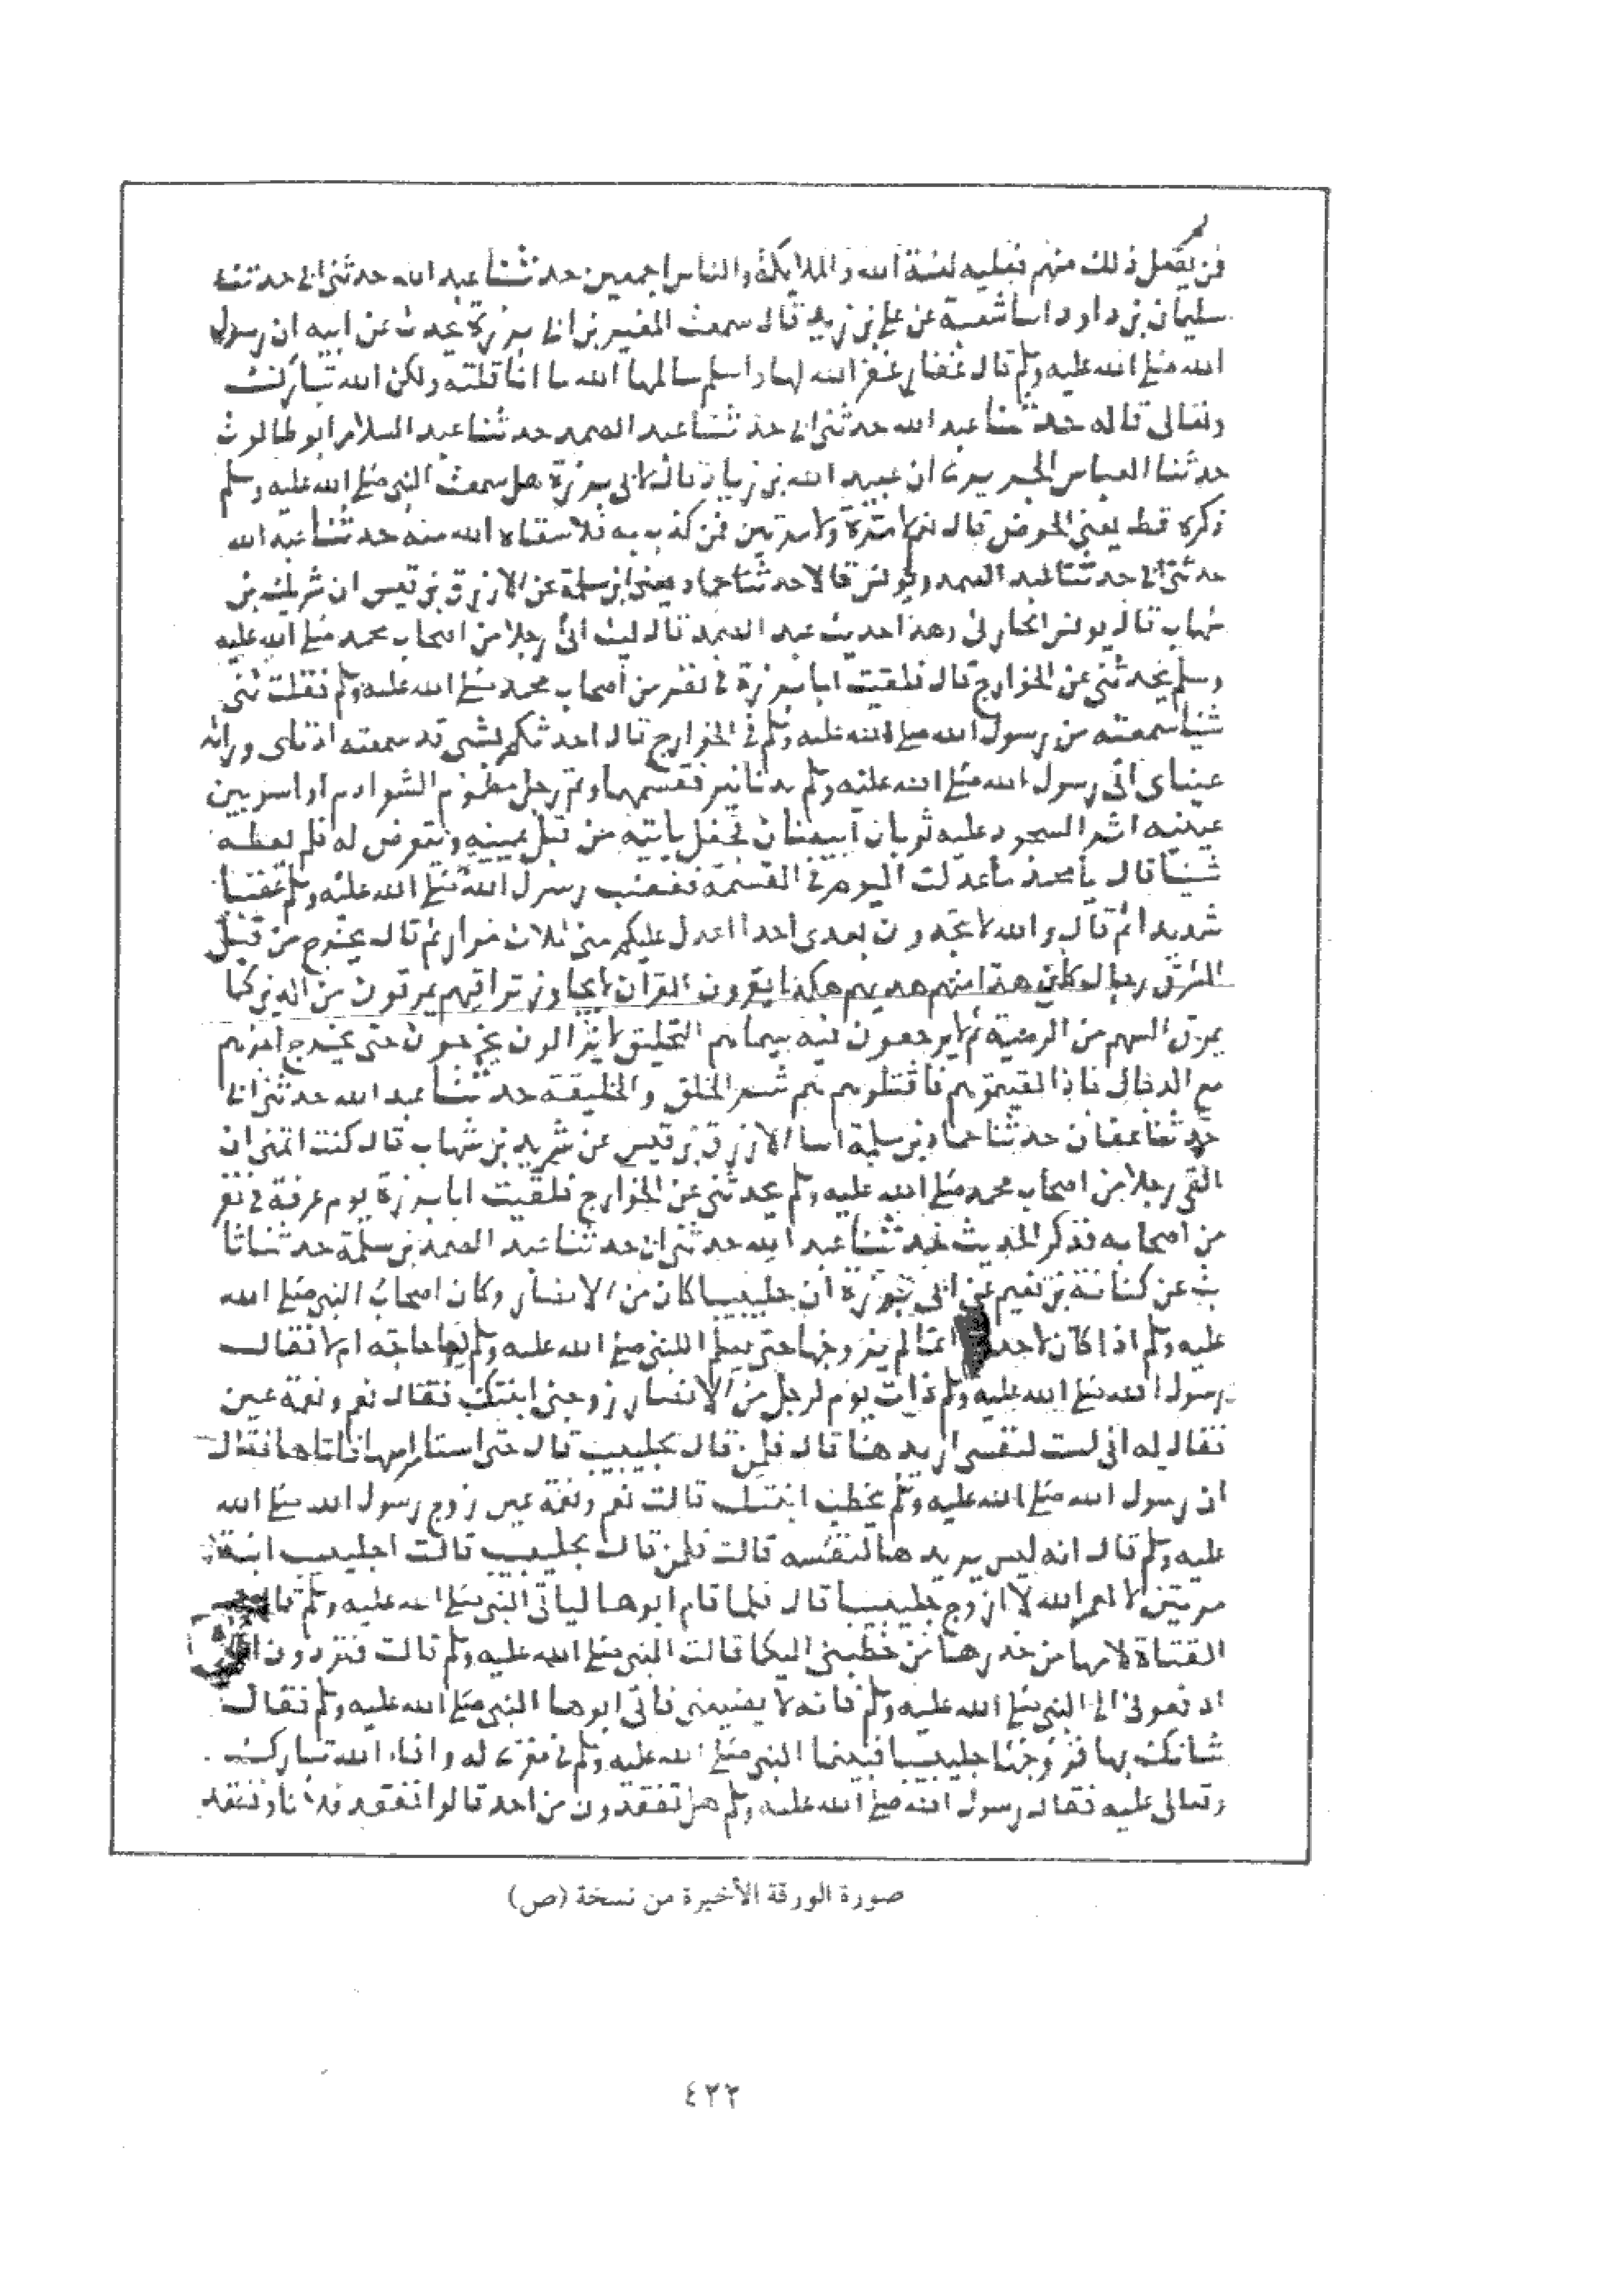 فمن يفعل ذلك منهم فعليه لعنة الله والملايكة والناس اجمعين حدثنا عبد الله حدثنى ابى حدثنا
سليمان بن داود اسا شعبة عن على بن زيد قال سمعت المغيرة بن ابى برزة يحدث عن ابيه ان رسول
الله صلى الله عليه وسلم قال غفار غفر الله لها واسلم سالمها الله ما انا قلته ولكن الله تبارك
وتعالى قاله حدثنا عبد الله حدثنى ابى حدثنا عبد الصمد حدثنا عبد السلام ابو طالوت
حدثنا العباس الجريرى ان عبيد الله بن زياد قال لابى برزة هل سمعت النبى صلى الله عليه وسلم
ذكره قط يعنى الحوض قال نعم لا مرة ولا مرتين فمن كذب به فلا سقاه الله منه حدثنا عبد الله
حدثنى ابى حدثنا عبد الصمد ويونس قالا حدثنا حماد يعنى ابن سلمة عن الازرق بن قيس ان شريك بن
شهاب قال يونس الحارثى وهذا حديث عبد الصمد قال ليت انى رجلا من اصحاب محمد صلى الله عليه
وسلم يحدثنى عن الخوارج قال فلقيت ابا برزة فى نفر من أصحاب محمد صلى الله عليه وسلم فقلت
شيئا سمعته من رسول الله صلى الله عليه وسلم فى الخوارج قال احدثكم بشى قد سمعته اذناى وراته
عيناى اتى رسول الله صلى الله عليه وسلم بدنانير فقسمها وثم رجل مطموم الشعر ادم او اسود بين
عينيه اثر السجود عليه ثوبان أبيضان فجعل ياتيه من قبل يمينه ويتعرض له فلم يعطه
شيئا قال يا محمد ما عدلت اليوم فى القسمة فغضب رسول الله صلى الله عليه وسلم غضبا
شديدا ثم قال والله لا تجدون بعدى احدا اعدل عليكم منى ثلاث مرار ثم قال يخرج من قبل
المشرق رجال كان هذا منهم هديهم هكذا يقرون القرآن لا يجاوز تراقيهم يمرقون من الدين كما
يمرق السهم من الرمية ثم لا يرجعون فيه سيماهم التحليق لا يزالون يخرجون حتى يخرج اخرهم
مع الدجال فاذا لقيتموهم فاقتلوهم هم شر الخلق والخليقة حدثنا عبد الله حدثنى ابى
حدثنا عفان حدثنا حماد بن سلمة اسا الازرق بن قيس عن شريك بن شهاب قال كنت اتمنى ان
القى رجلا من اصحاب محمد صلى الله عليه وسلم يحدثنى عن الخوارج فلقيت ابا برزة يوم عرفة فى نفر
من اصحابه فذكر الحديث حدثنا عبد الله حدثنى ابى حدثنا عبد الصمد بن سلمة حدثنا ثا
بت عن كنانة بن نعيم عن ابى برزة ان جليبيبا كان من الانصار وكان اصحاب النبى صلى الله
عليه وسلم اذا كان لاحدهم ايما لم يزوجها حتى يعلم للنبى صلى الله عليه وسلم فيها حاجته ام لا فقال
رسول الله صلى الله عليه وسلم ذات يوم لرجل من الانصار زوجنى ابنتك فقال نعم ونعمة عين
فقال له انى لست لنفسى اريدها قال فلمن قال لجليبيب قال حتى استامر امها فاتاها فقال
ان رسول الله صلى الله عليه وسلم يخطب ابنتك قالت نعم ونعمة عين زوج رسول الله صلى الله
عليه وسلم قال انه ليس يريدها لنفسه قالت فلمن قال لجليبيب قالت اجليبيب
مرتين لا لعمر الله لا ازوج جليبيبا قال فلما قام ابوها لياتى النبى صلى الله عليه وسلم قالت
الفتاة لامها من خدرها من خطبنى اليكما قالت النبى صلى الله عليه وسلم قالت فتردون
ادفعونى الى النبى صلى الله عليه وسلم فانه لا يضيعنى فاتى ابوها النبى صلى الله عليه وسلم فقال
شانك بها فزوجها جليبيبا فبينما النبى صلى الله عليه وسلم فى مغزى له وافاء الله تبارك
وتعالى عليه فقال رسول الله صلى الله عليه وسلم هل تفقدون من احد قالوا نفقد فلانا ونفقد
صورة الورقة الأخيرة من نسخة (ص)
٤٢٢